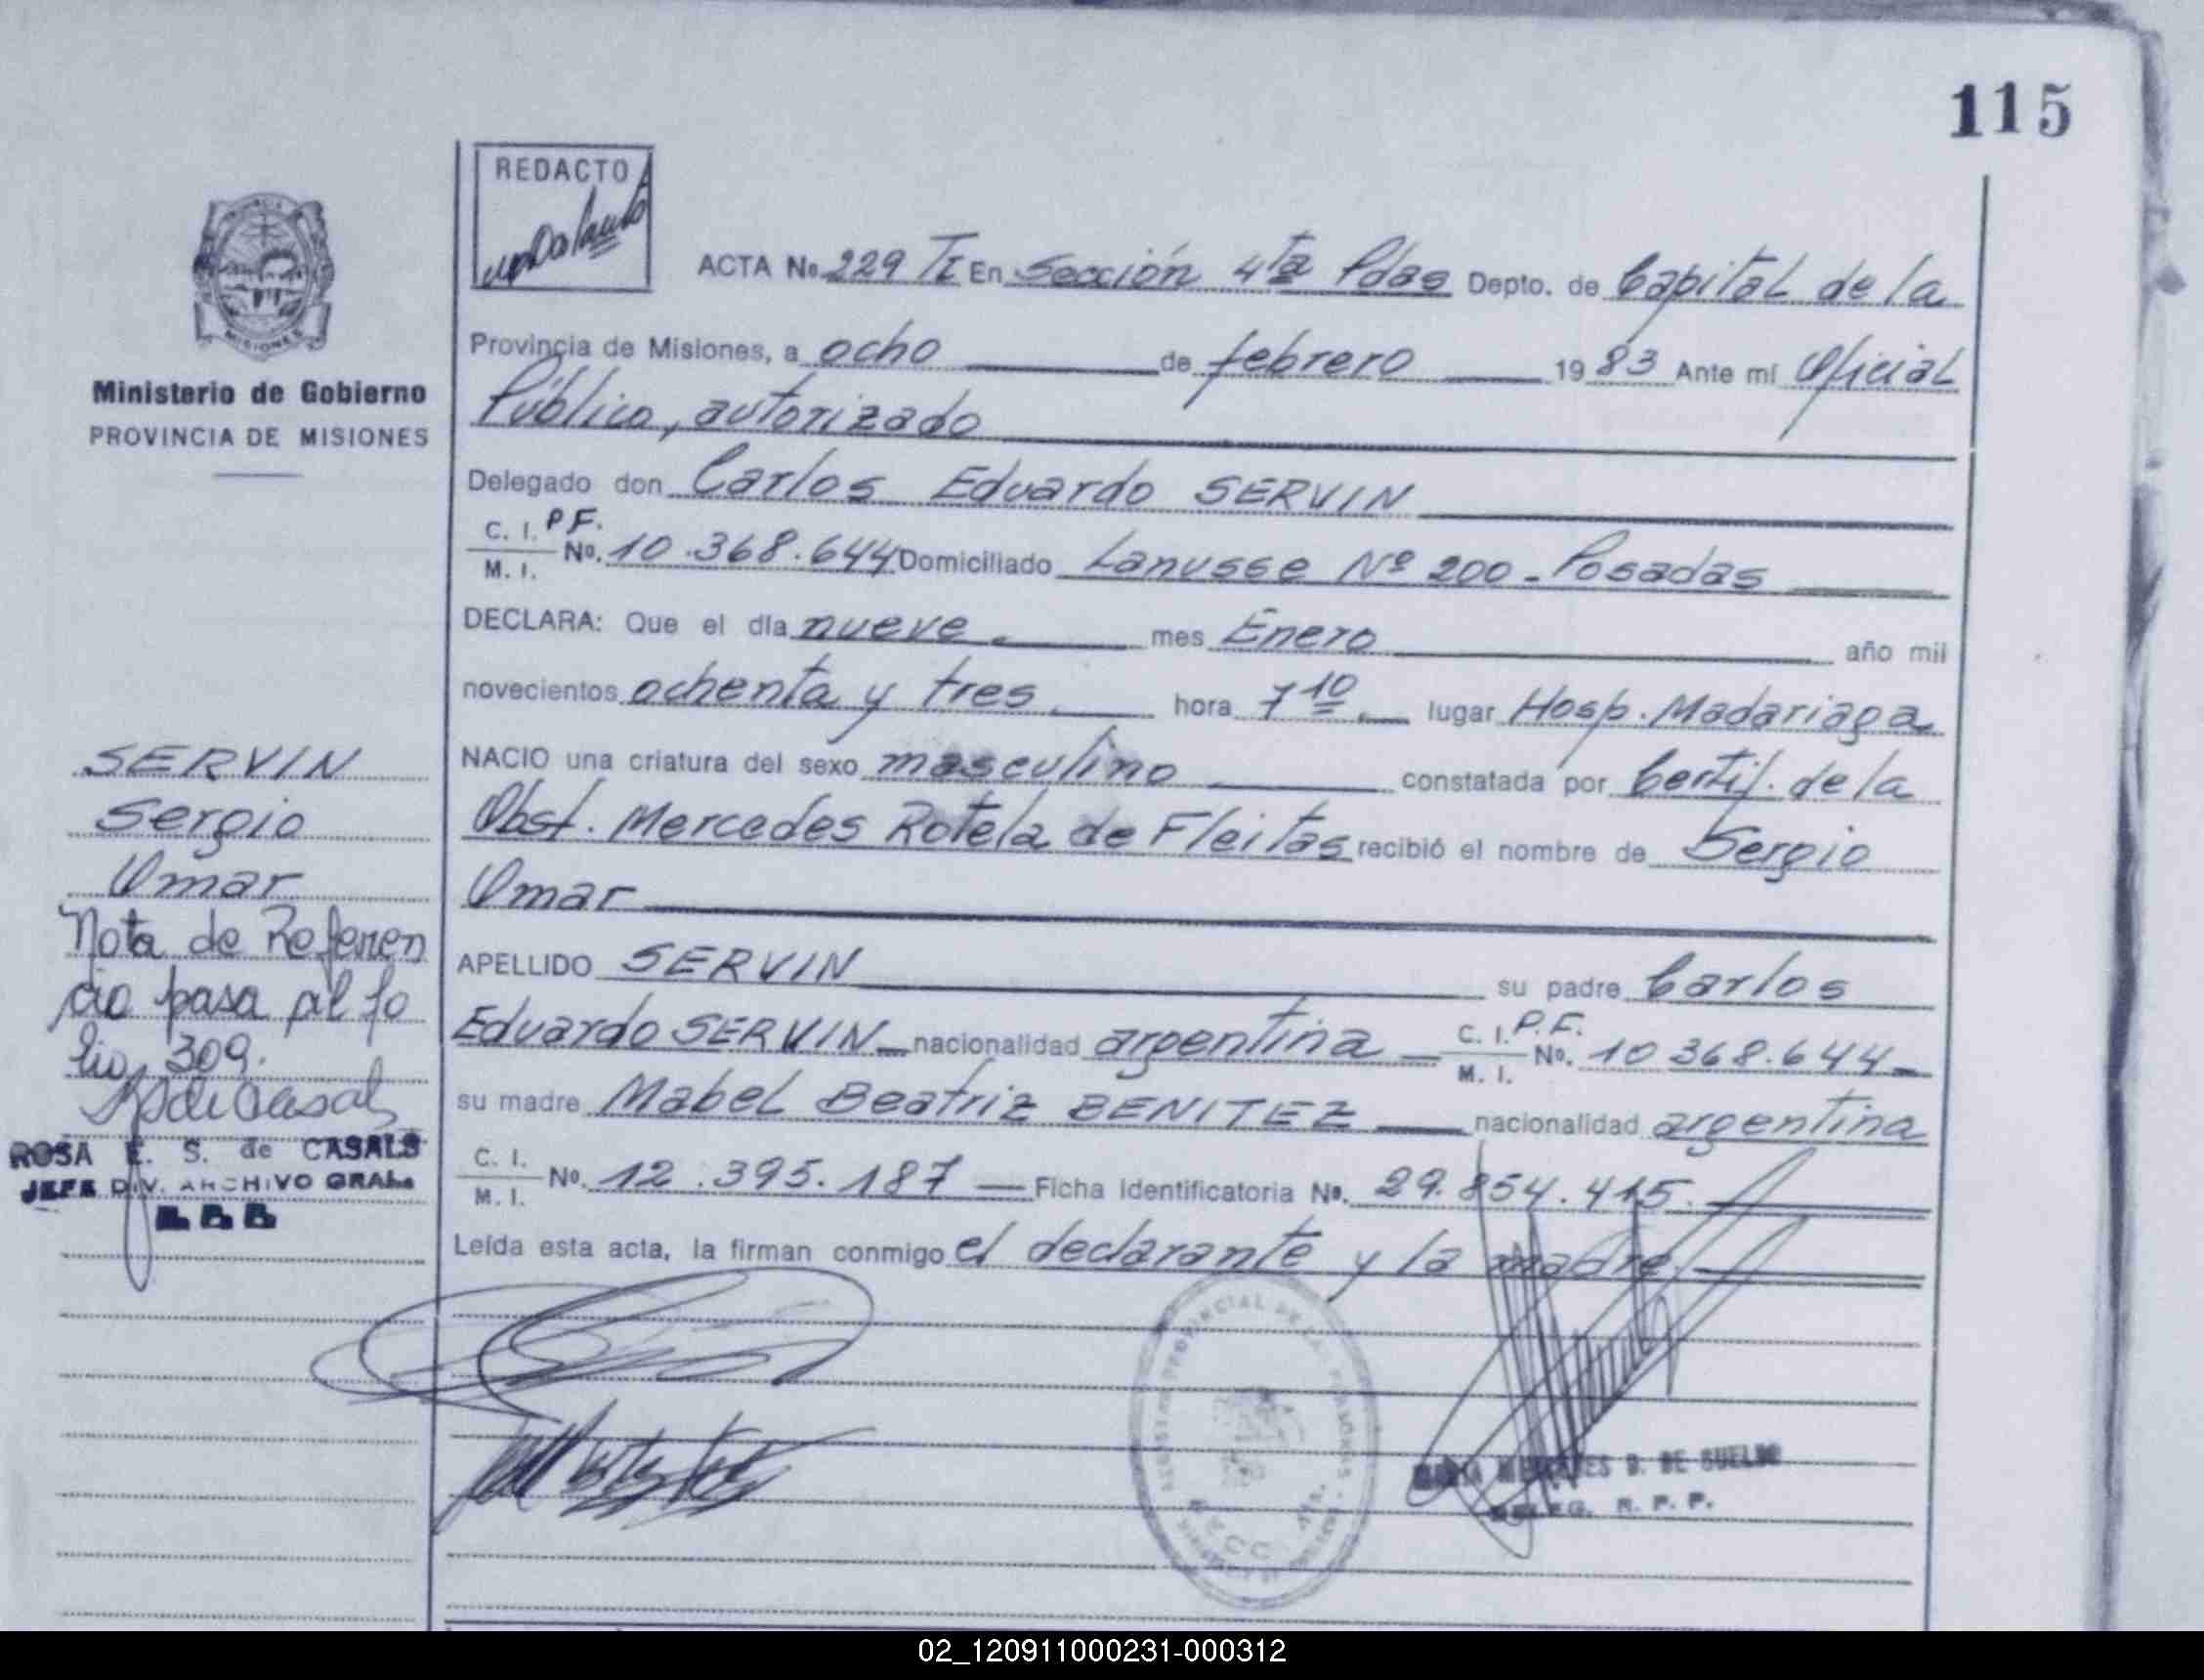 115
REDACTO
ACTA No. 229 TI En Sección 4ta Pdas Depto. de Capital de la
Provincia de Misiones, a ocho de febrero 1983 Ante mí Oficial
Público, autorizado
Delegado don Carlos Eduardo SERVIN
C. I. P.F.
M. I. No. 10.368.644 Domiciliado Lanusse Nº 200 - Posadas
DECLARA: Que el día nueve mes Enero año mil
novecientos ochenta y tres hora 7 10 lugar Hosp. Madariaga
NACIO una criatura del sexo masculino constatada por Certif. de la
Obst. Mercedes Rotela de Fleitas recibió el nombre de Sergio
Omar
APELLIDO SERVIN su padre Carlos
Eduardo SERVIN nacionalidad argentina C. I. P.F. M. I. No. 10 368.644
su madre Mabel Beatriz BENITEZ nacionalidad argentina
C. I. M. I. No. 12.395.187 Ficha Identificatoria No. 29.854.415.
Leída esta acta, la firman conmigo el declarante y la madre
MISIONES
Ministerio de Gobierno
PROVINCIA DE MISIONES
SERVIN
Sergio
Omar
Nota de Referen
cia pasa al fo
lio 309.
ROSA E. S. de CASALS
JEFE DIV. ARCHIVO GRAL.
DE SUELDO
DELEG. R. P. P.
02_120911000231-000312